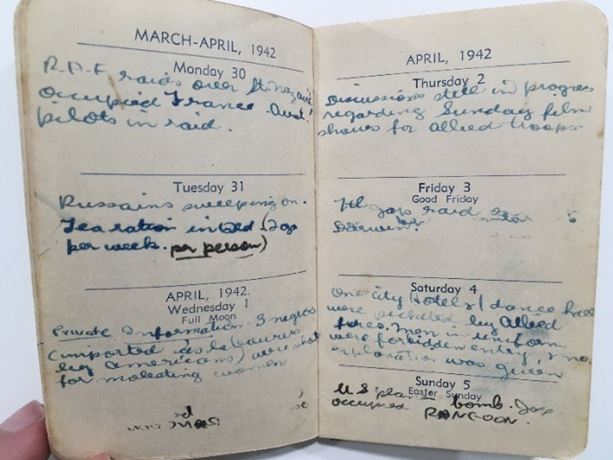 MARCH-APRIL, 1942
Monday 30
R.A.F raids over St Nazaire
occupied France. Aust
pilots in raid.
Tuesday 31
Russains sweeping on.
Tea ration in (2 ozs
per week. per person)
APRIL, 1942.
Wednesday 1
Full Moon
Private Information. 3 negros
(imported as labourers
by Americans) were shot
for molesting women
APRIL, 1942
Thursday 2
Discussions still in progress
regarding Sunday film
shows for Allied troops
Friday 3
Good Friday
Jap raid
Darwin
Saturday 4
One city Hotel & 1 dance hall
were picketed by Allied
forces. Men in uniform
were forbidden entry, & no
explanation was given
Sunday 5
Easter Sunday
U S planes bomb. Jap
occupied RANGOON.